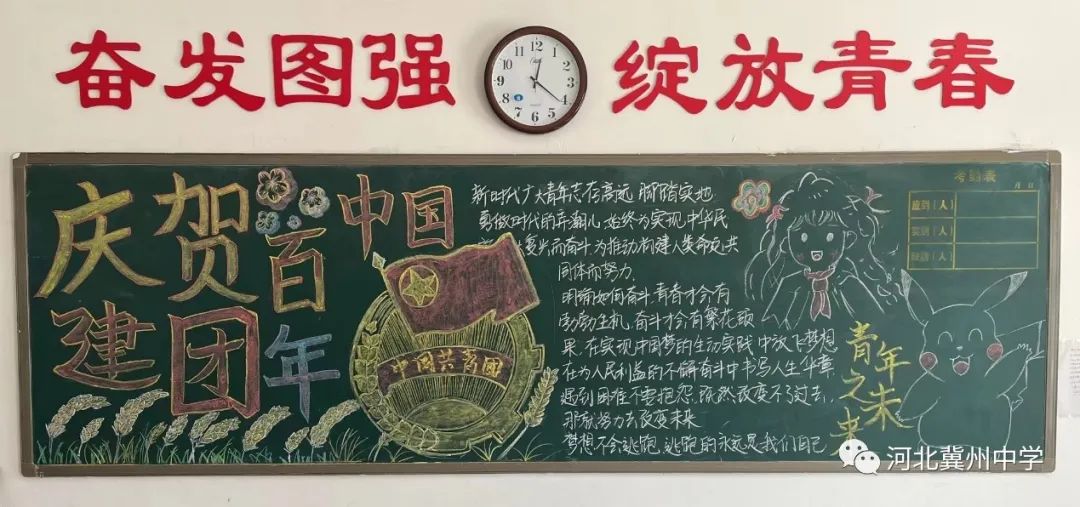 奋发图强
绽放青春
12
1
2
3
4
5
6
7
8
9
10
11
庆贺
建团
百年
中国
中国共青团
新时代广大青年志存高远 脚踏实地
勇做时代的弄潮儿 始终为实现中华民
复兴而奋斗 为推动构建人类命运共
同体而努力.
明确如何奋斗, 青春才会有
勃勃生机, 奋斗才会有繁花硕
果. 在实现中国梦的生动实践中放飞梦想
在为人民利益的不懈奋斗中书写人生华章
遇到困难不要抱怨, 既然改变不了过去,
那就努力去改变未来
梦想不会逃跑, 逃跑的永远是我们自己.
考勤表
月 日
应到(人)
实到(人)
缺到(人)
青年
之未
来
河北冀州中学